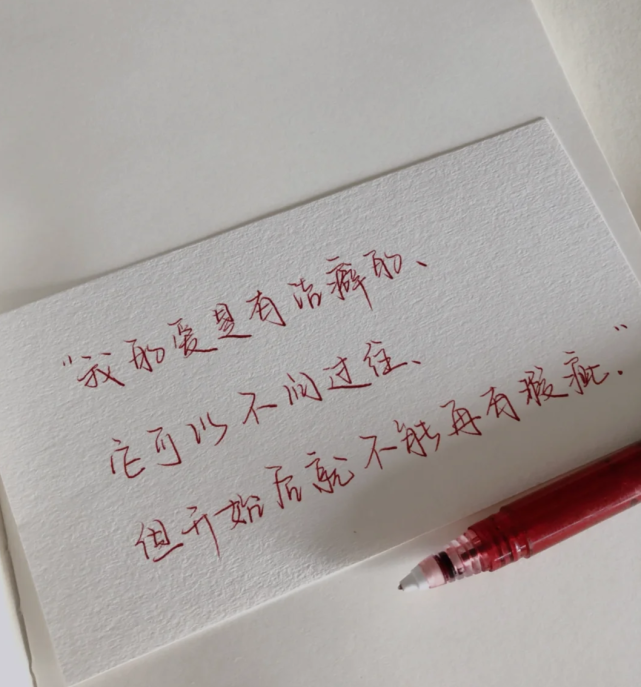 “我的爱是有洁癖的、
它可以不问过往、
但开始后就不能再有瑕疵.”